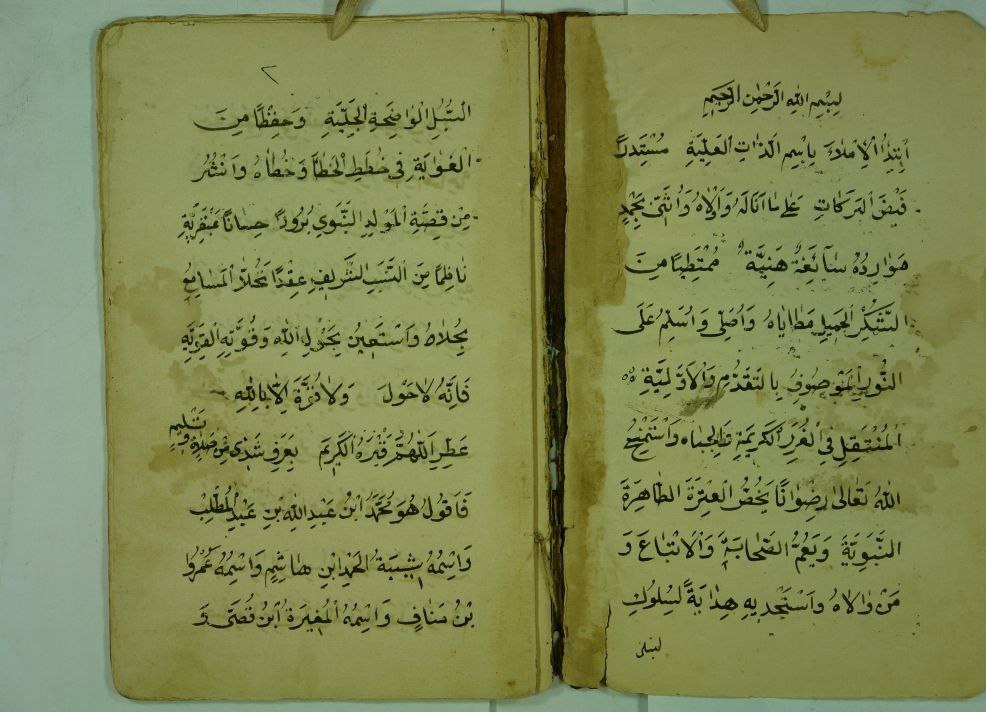 بِسْمِ اللهِ الرَّحْمٰنِ الرَّحِيمِ
اَبْتَدِأُ الْاِمْلَاءَ بِاسْمِ الذَّاتِ الْعَلِيَّةِ مُسْتَدِرًّا
فَيْضَ الْبَرَكَاتِ عَلٰى مَا اَنَالَهُ وَاَوْلَاهُ وَاُثَنِّى بِحَمْدٍ
مَوَارِدُهُ سَآئِغَةٌ هَنِيَّةٌ مُمْتَطِيًا مِنَ
الشُّكْرِ الْجَمِيلِ مَطَايَاهُ وَاُصَلِّى وَاُسَلِّمُ عَلَى
النُّورِ الْمَوْصُوفِ بِالتَّقَدُّمِ وَالْاَوَّلِيَّةِ
الْمُنْتَقِلِ فِي الْغُرَرِ الْكَرِيمَةِ وَالْجِبَاهِ وَاَسْتَمْنِحُ
اللهَ تَعَالٰى رِضْوَانًا يَخُصُّ الْعِتْرَةَ الطَّاهِرَةَ
النَّبَوِيَّةَ وَيَعُمُّ الصَّحَابَةَ وَالْاَتْبَاعَ وَ
مَنْ وَالَاهُ وَاَسْتَجْدِيهِ هِدَايَةً لِسُلُوكِ
السُّبُلِ
٢
السُّبُلِ الْوَاضِحَةِ الْجَلِيَّةِ وَحِفْظًا مِنَ
الْغَوَايَةِ فِى خِطَطِ الْخَطَأِ وَخُطَاهُ وَاَنْشُرُ
مِنْ قِصَّةِ الْمَوْلِدِ النَّبَوِي بُرُودًا حِسَانًا عَبْقَرِيَّةً
نَاظِمًا مِنَ النَّسَبِ الشَّرِيفِ عِقْدًا تُحَلَّا الْمَسَامِعُ
بِحُلَاهُ وَاَسْتَعِينُ بِحَوْلِ اللهِ وَقُوَّتِهِ الْقَوِيَّةِ
فَاِنَّهُ لَاحَوْلَ وَلَا قُوَّةَ اِلَّا بِاللهِ
عَطِّرِ اللّٰهُمَّ قَبْرَهُ الْكَرِيمَ بِعَرْفٍ شَذِىٍّ مِنْ صَلَاةٍ وَتَسْلِيمٍ
فَاَقُولُ هُوَ مُحَمَّدُ ابْنُ عَبْدِ اللهِ بْنِ عَبْدِ الْمُطَّلِبِ
وَاسْمُهُ شَيْبَةُ الْحَمْدِ ابْنِ هَاشِمٍ وَاسْمُهُ عَمْرُوا
بْنُ مَنَافٍ وَاسْمُهُ الْمُغِيرَةُ ابْنُ قُصَىٍّ وَ